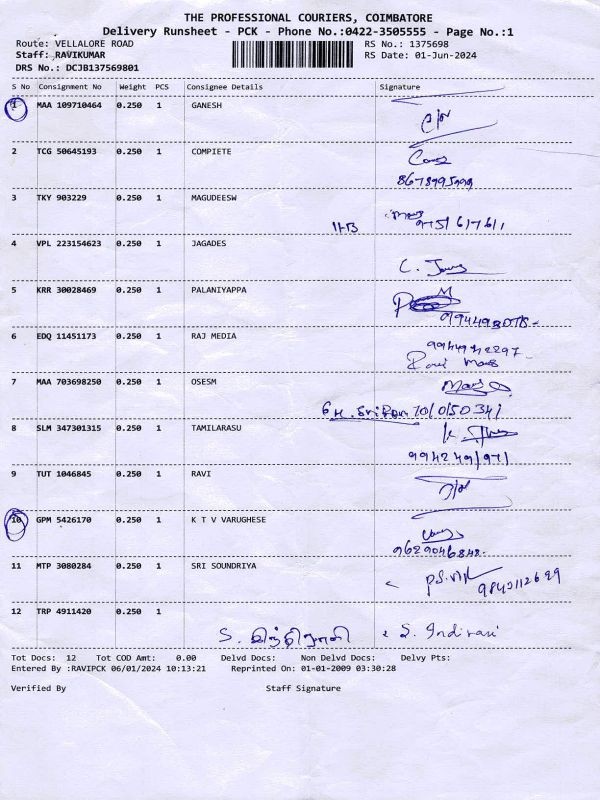 THE PROFESSIONAL COURIERS, COIMBATORE
Delivery Runsheet - PCK - Phone No.:0422-3505555 - Page No.:1
Route: VELLALORE ROAD RS No.: 1375698
Staff: RAVIKUMAR RS Date: 01-Jun-2024
DRS No.: DCJB137569801
S No Consignment No Weight PCS Consignee Details Signature
1 MAA 109710464 0.250 1 GANESH
2 TCG 50645193 0.250 1 COMPIETE
8678995999
3 TKY 903229 0.250 1 MAGUDEESW
4 VPL 223154623 0.250 1 JAGADES
5 KRR 30028469 0.250 1 PALANIYAPPA
6 EDQ 11451173 0.250 1 RAJ MEDIA
7 MAA 703698250 0.250 1 OSESM
8 SLM 347301315 0.250 1 TAMILARASU
9 TUT 1046845 0.250 1 RAVI
10 GPM 5426170 0.250 1 K T V VARUGHESE
9629046848
11 MTP 3080284 0.250 1 SRI SOUNDRIYA
12 TRP 4911420 0.250 1
S. Indirani
Tot Docs: 12 Tot COD Amt: 0.00 Delvd Docs: Non Delvd Docs: Delvy Pts:
Entered By :RAVIPCK 06/01/2024 10:13:21 Reprinted On: 01-01-2009 03:30:28
Verified By Staff Signature